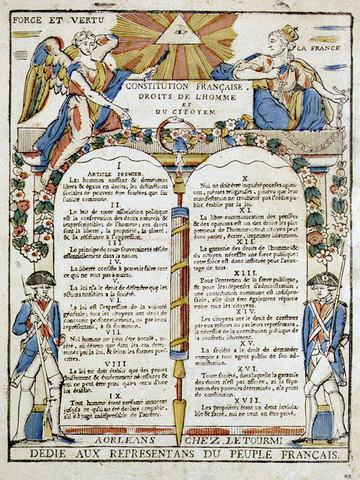 FORCE ET VERTU
LA FRANCE
CONSTITUTION FRANÇAISE.
DROITS DE L'HOMME
ET
DU CITOYEN.
I
ARTICLE PREMIER.
Les hommes naissent & demeurent
libres & égaux en droits; les distinctions
sociales ne peuvent être fondées que sur
l'utilité commune.
II.
Le but de toute association politique
est la conservation des droits naturels &
imprescriptibles de l'homme; ces droits
sont la liberté, la propriété, la sûreté,
& la résistance à l'oppression.
III.
Le principe de toute souveraineté réside
essentiellement dans la nation.
IV.
La liberté consiste à pouvoir faire tout
ce qui ne nuit pas à autrui.
V.
La loi n'a le droit de défendre que les
actions nuisibles à la société.
VI.
La loi est l'expression de la volonté
générale; tous les citoyens ont droit de
concourir personnellement, ou par leurs
représentans, à sa formation.
VII.
Nul homme ne peut être accusé, arrêté,
ni détenu que dans les cas déterminés
par la loi, & selon les formes prescrites.
VIII.
La loi ne doit établir que des peines
strictement & évidemment nécessaires &
nul ne peut être puni qu'en vertu d'une
loi établie.
IX.
Tout homme étant présumé innocent
jusqu'à ce qu'il ait été déclaré coupable,
s'il est jugé indispensable de l'arrêter.
X.
Nul ne doit être inquiété pour ses opinions,
mêmes religieuses, pourvu que leur
manifestation ne trouble pas l'ordre public
établi par la loi.
XI.
La libre communication des pensées
& des opinions est un des droits les plus
précieux de l'homme: tout citoyen peut
donc parler, écrire, imprimer librement.
XII.
La garantie des droits de l'homme & du
citoyen nécessite une force publique:
cette force est donc instituée pour l'avantage
de tous.
XIII.
Pour l'entretien de la force publique,
& pour les dépenses d'administration,
une contribution commune est indispensable,
elle doit être également répartie
entre tous les citoyens.
XIV.
Les citoyens ont le droit de constater
par eux mêmes ou par leurs représentans,
la nécessité de la contribution publique,
de la consentir librement.
XV.
La société a le droit de demander
compte à tout agent public de son administration.
XVI.
Toute société, dans laquelle la garantie
des droits n'est pas assurée, ni la séparation
des pouvoirs déterminée, n'a point
de constitution.
XVII.
Les propriétés étant un droit inviolable
& sacré, nul ne peut en être privé.
A ORLEANS CHEZ LETOURMI
DÉDIE AUX REPRESENTANS DU PEUPLE FRANÇAIS.